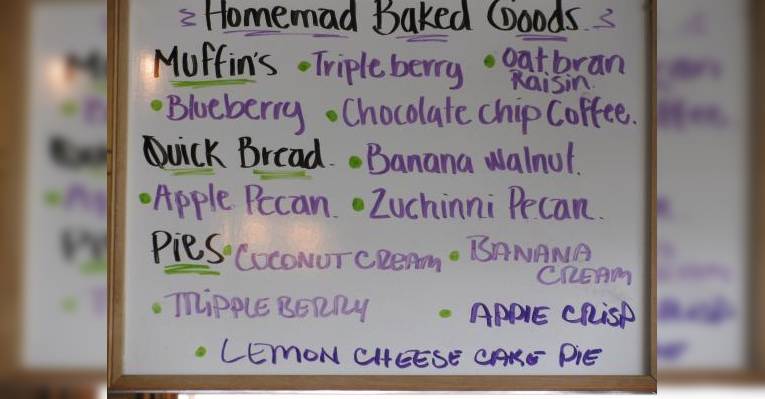 Homemad Baked Goods
Muffin's • Triple berry • Oat bran Raisin
• Blueberry • Chocolate chip Coffee.
Quick Bread • Banana Walnut.
• Apple Pecan. • Zuchinni Pecan.
Pies • COCONUT CREAM • BANANA CREAM
• TRIPPLE BERRY • APPLE CRISP
• LEMON CHEESE CAKE PIE